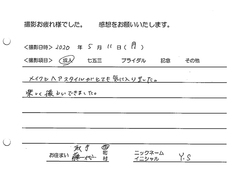 撮影お疲れ様でした。 感想をお願いいたします。
＜撮影日時＞ 2020 年 5 月 11 日 ( 月 )
＜撮影区分＞ 成人 七五三 ブライダル 記念 その他
＜感想＞
メイクもヘアスタイルがとても気に入りました。
楽しく撮れました。
お住まい 市 町 村
ニックネーム イニシャル Y.S